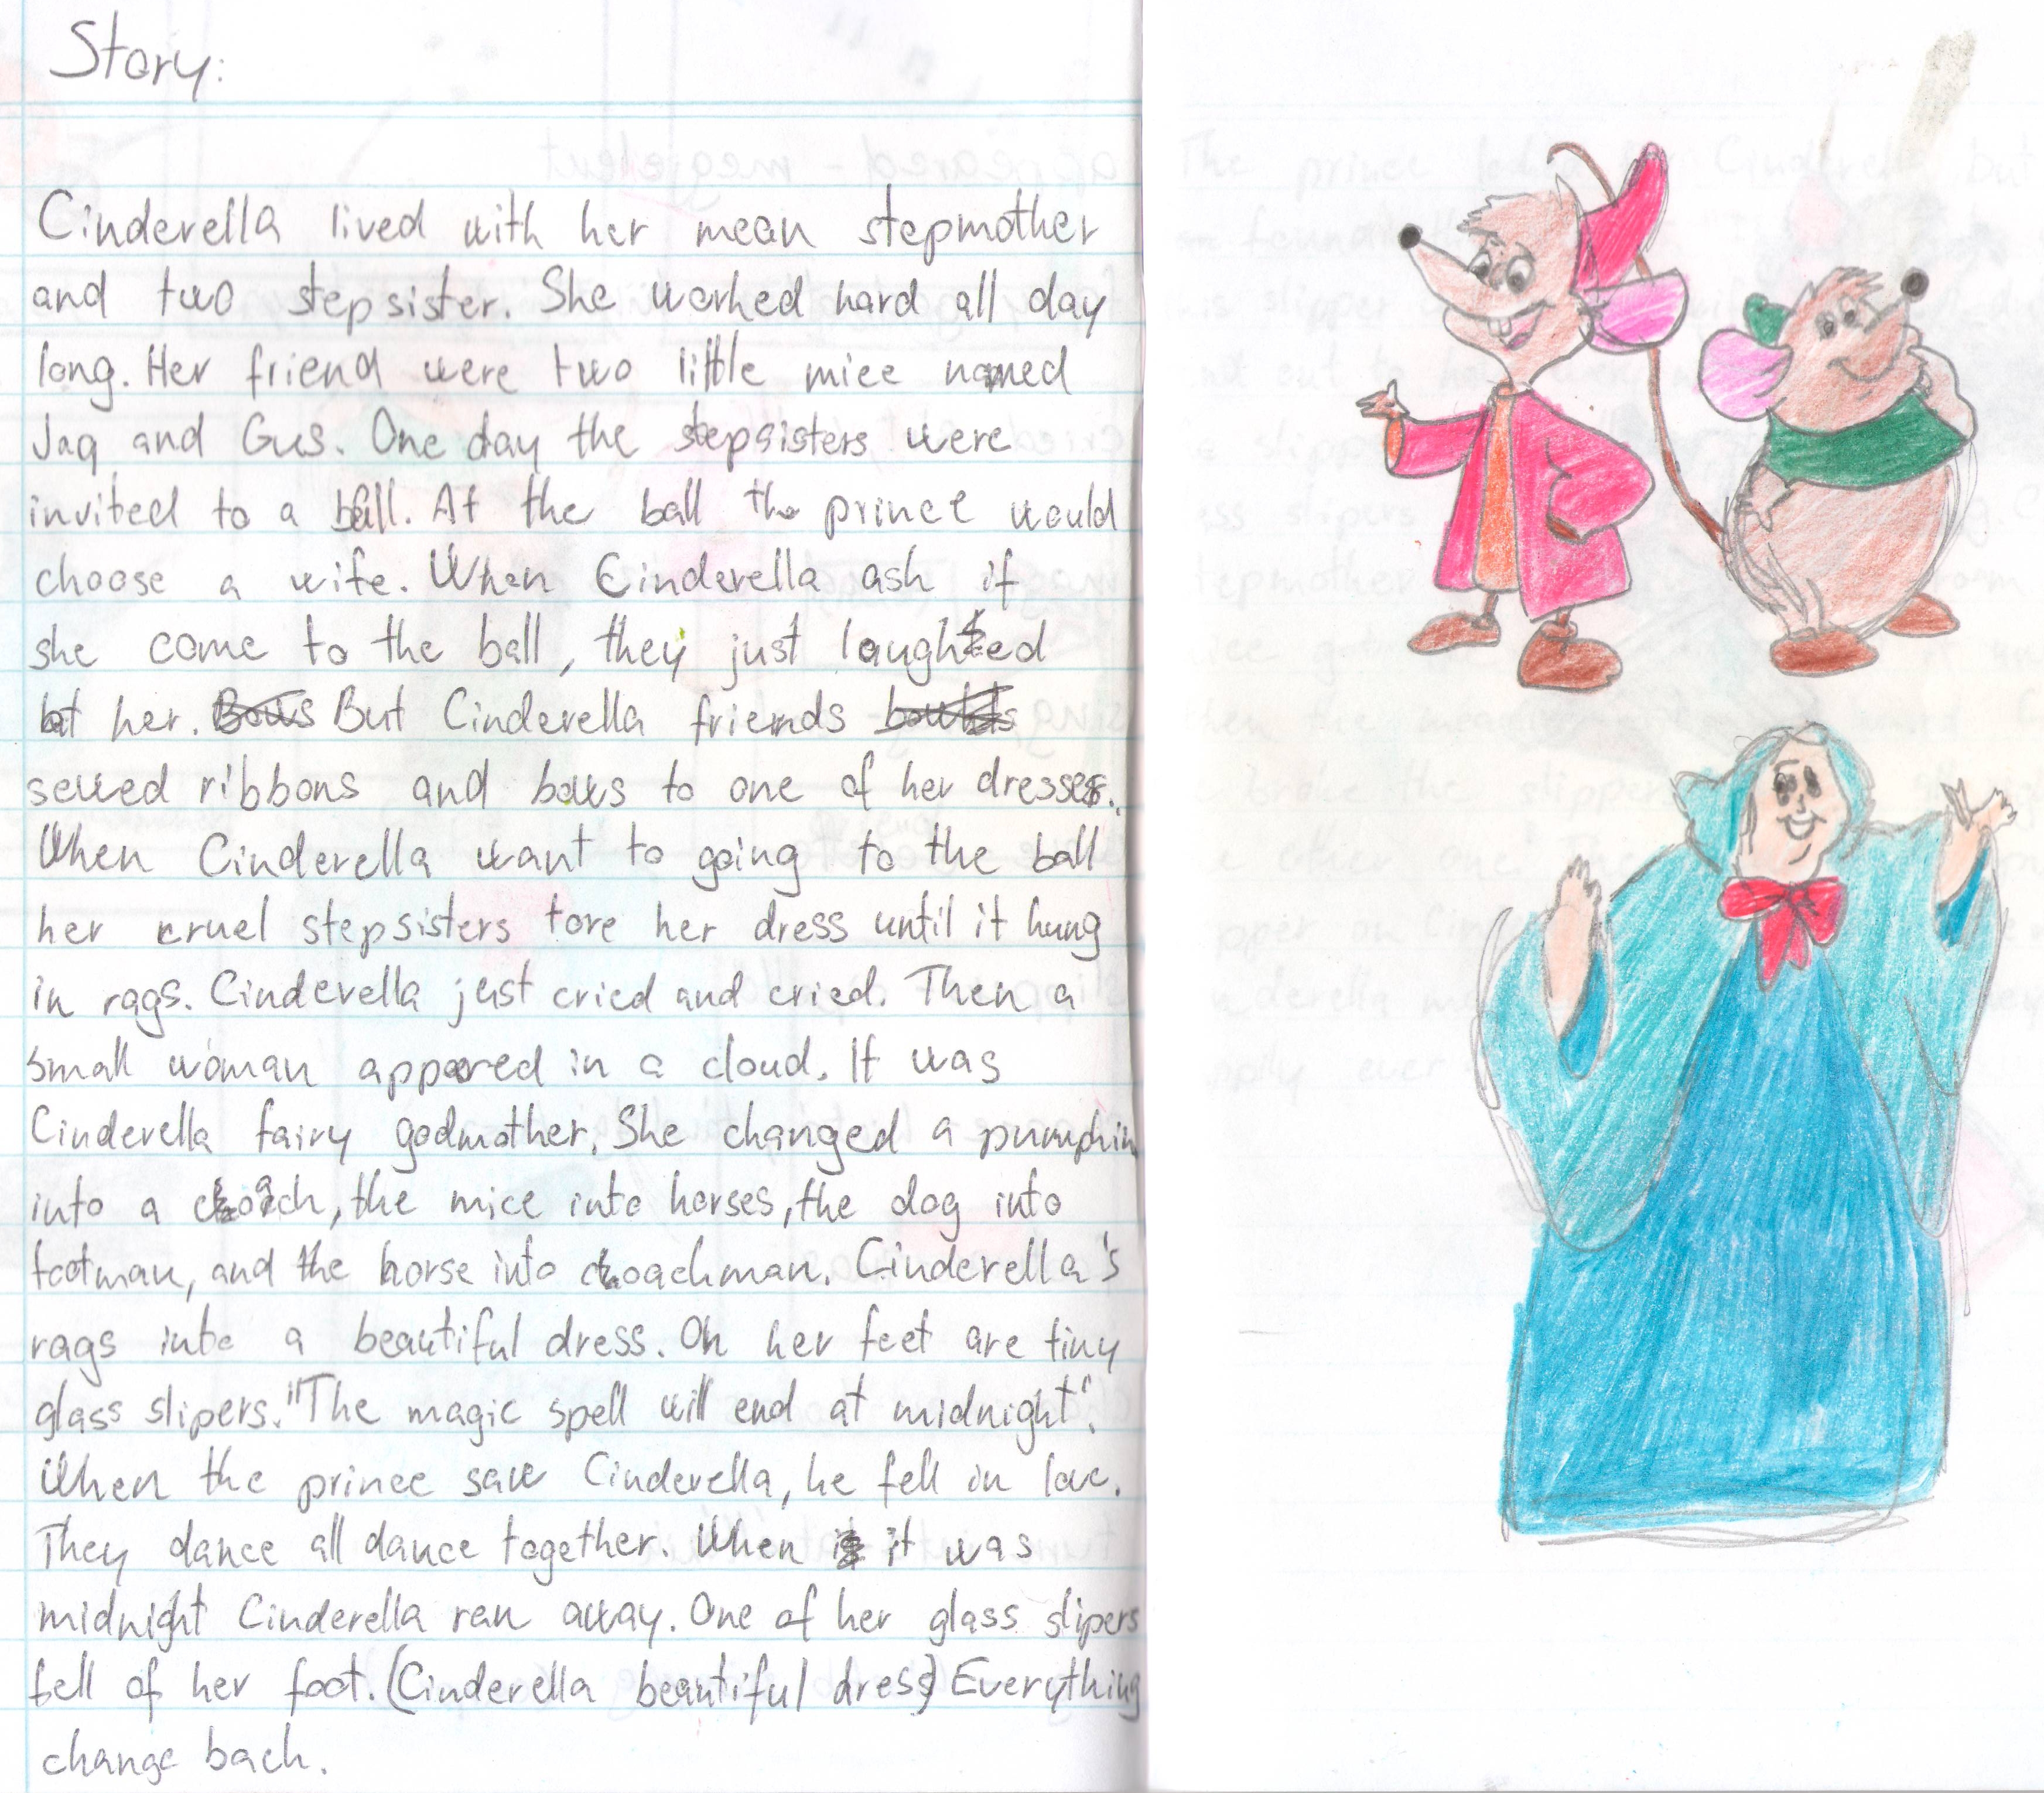 Story:
Cinderella lived with her mean stepmother
and two stepsister. She worked hard all day
long. Her friend were two little mice named
Jaq and Gus. One day the stepsisters were
invited to a ball. At the ball the prince would
choose a wife. When Cinderella ask if
she come to the ball, they just laughed
at her. Bows But Cinderella friends
sewed ribbons and bows to one of her dresses.
When Cinderella want to going to the ball
her cruel stepsisters tore her dress until it hung
in rags. Cinderella just cried and cried. Then a
small woman appared in a cloud. It was
Cinderella fairy godmother. She changed a pumpkin
into a coach, the mice into horses, the dog into
footman, and the horse into coachman. Cinderella's
rags into a beautiful dress. On her feet are tiny
glass slipers. "The magic spell will end at midnight".
When the prince saw Cinderella, he fell in love.
They dance all dance together. When it was
midnight Cinderella ran away. One of her glass slipers
fell of her foot. (Cinderella beautiful dress) Everything
change back.